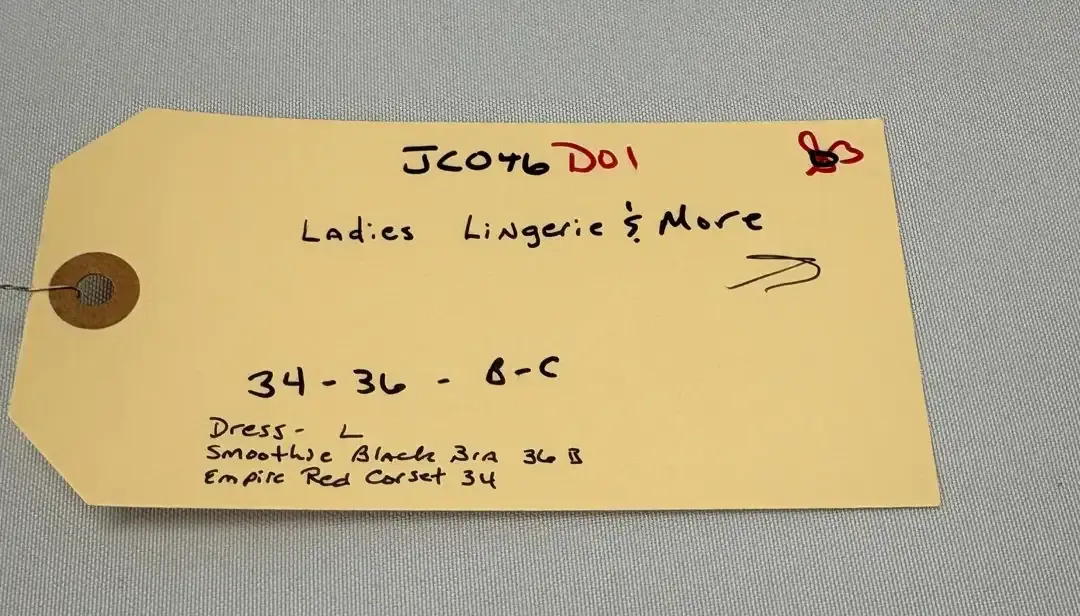 JC046 D01
Ladies Lingerie & More
34 - 36 - B - C
Dress - L
Smoothie Black Bra 36 B
Empire Red Corset 34